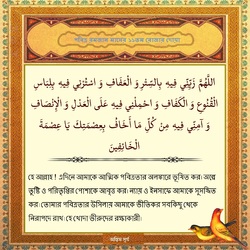 পবিত্র রমজান মাসের ১২তম রোজার দোয়া
اللهُمَّ زَيِّنِّي فِيهِ بِالسِّتْرِ وَ الْعَفَافِ وَ اسْتُرْنِي فِيهِ بِلِبَاسِ
الْقُنُوعِ وَ الْكَفَافِ وَ احْمِلْنِي فِيهِ عَلَى الْعَدْلِ وَ الْإِنْصَافِ
وَ آمِنِّي فِيهِ مِنْ كُلِّ مَا أَخَافُ بِعِصْمَتِكَ يَا عِصْمَةَ
الْخَائِفِينَ
হে আল্লাহ ! এদিনে আমাকে আত্মিক পবিত্রতার অলঙ্কারে ভূষিত কর। অল্পে
তুষ্টি ও পরিতৃপ্তির পোশাকে আবৃত কর। ন্যায় ও ইনসাফে আমাকে সুসজ্জিত
কর। তোমার পবিত্রতার উসিলায় আমাকে ভীতিকর সবকিছু থেকে
নিরাপদে রাখ। হে খোদা ভীরুদের রক্ষাকারী।